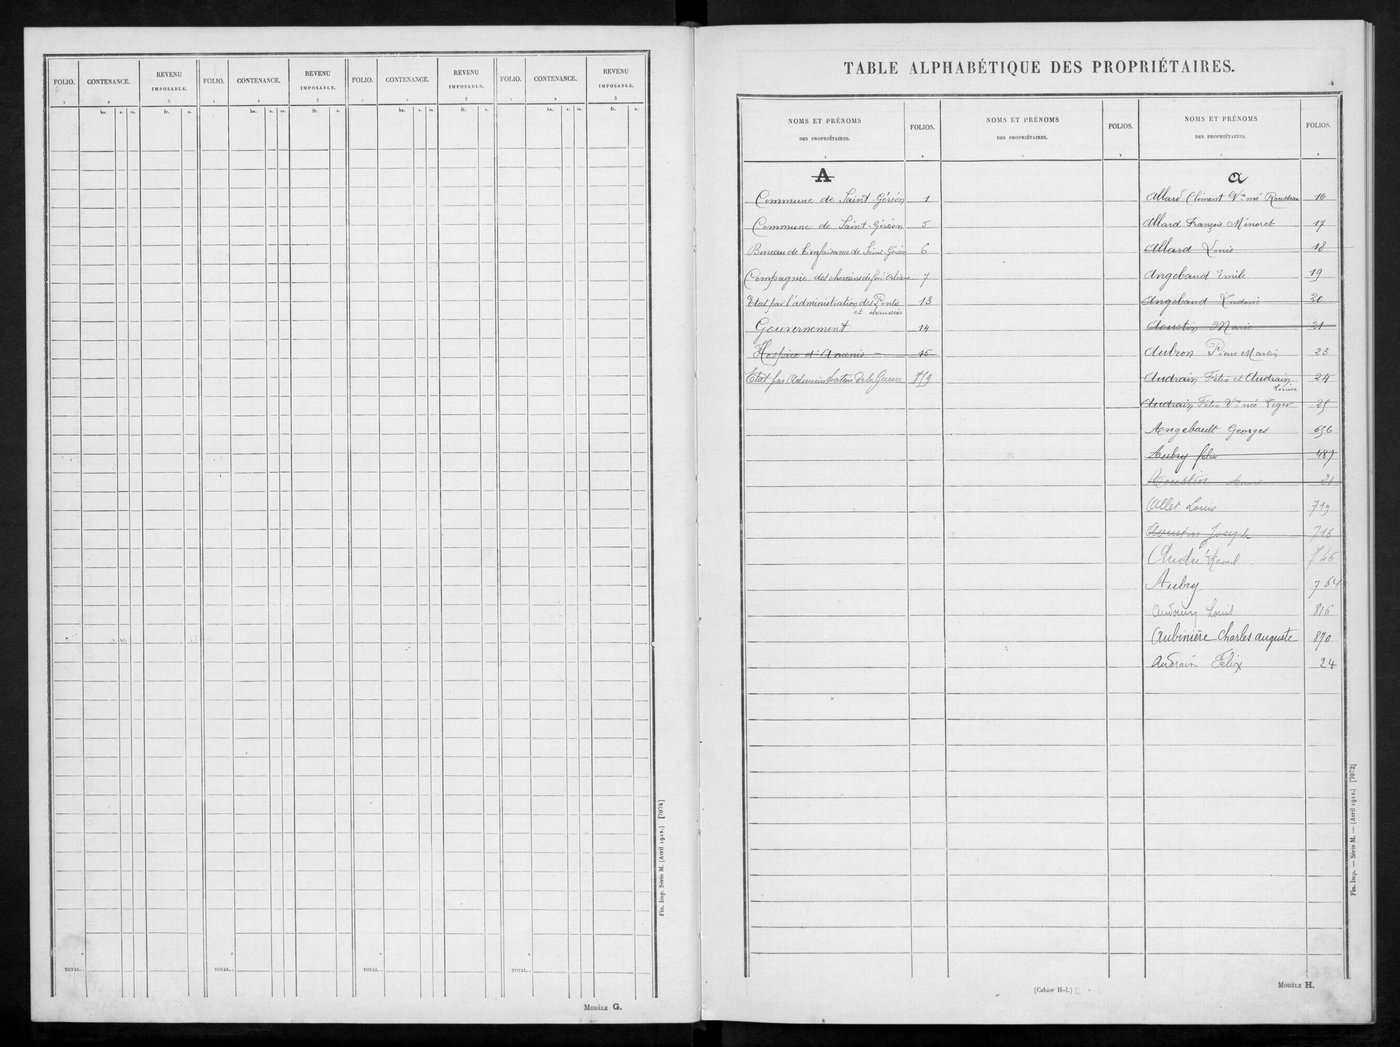 FOLIO. CONTENANCE. REVENU IMPOSABLE. FOLIO. CONTENANCE. REVENU IMPOSABLE. FOLIO. CONTENANCE. REVENU IMPOSABLE. FOLIO. CONTENANCE. REVENU IMPOSABLE.
1 2 3 1 2 3 1 2 3 1 2 3
ha. a. ca. fr. c. ha. a. ca. fr. c. ha. a. ca. fr. c. ha. a. ca. fr. c.
TOTAL. . TOTAL. . TOTAL. . TOTAL. .
Fin. Imp. Série M. (Avril 1912.) [7074]
MODÈLE G.
TABLE ALPHABÉTIQUE DES PROPRIÉTAIRES.
NOMS ET PRÉNOMS DES PROPRIÉTAIRES. FOLIOS. NOMS ET PRÉNOMS DES PROPRIÉTAIRES. FOLIOS. NOMS ET PRÉNOMS DES PROPRIÉTAIRES. FOLIOS.
1 2 1 2 1 2
A
Commune de Saint-Géréon 1
Commune de Saint-Géréon 5
Bureau de bienfaisance de Saint-Géréon 6
Compagnie des chemins de fer d'Orléans 7
Etat par l'administration des Ponts et chaussées 13
Gouvernement 14
Hospice d'Ancenis 15
Etat par Administration de la Guerre 859
a
Allard Clément Vve née Rousteau 16
Allard François Ménoret 17
Allard Louis 18
Angebaud Emile 19
Angebaud Ludovic 20
Aoustin Marie 21
Aubron Pierre Martin 23
Audrain Félix et Audrain Louise 24
Audrain Félix Vve née Leger 25
Angebault Georges 656
Aubry 487
Aoustin 21
Allet Louis 719
Aoustin Joseph 715
André Raoul 746
Aubry 764
Audouin Louis 815
Aubinière Charles auguste 870
Audrain Félix 24
Fin. Imp. — Série M. — (Avril 1912.) [7073]
(Cahier H-1.)
MODÈLE H.